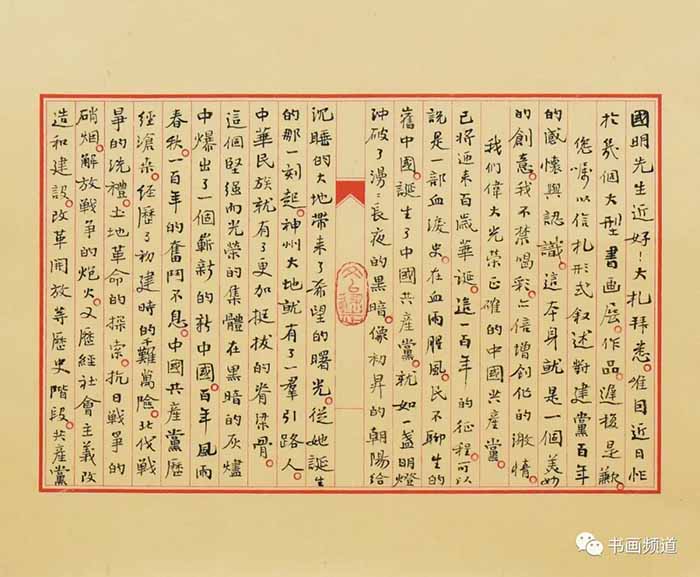 國明先生近好！大札拜悉。准因近日忙
於幾個大型書画展。作品。遲複是歉。
您囑以信札形式叙述對建黨百年
的感懷與認識。這本身就是一個美妙
的創意。我不禁喝彩。亦倍增創作的激情。
我們偉大光榮正確的中國共産黨。
已將迎来百歲華誕。這一百年的征程可以
説是一部血淚史。在血雨腥風。民不聊生的
舊中國。誕生了中國共産黨。就如一盏明燈
冲破了漫漫長夜的黑暗像初昇的朝陽给
沉睡的大地帶来了希望的曙光。從她誕生
的那一刻起。神州大地就有了一羣引路人。
中華民族就有了更加挺拔的脊梁骨。
這個堅强而光榮的集體在黑暗的灰燼
中爆出了一個嶄新的新中國。百年風雨
春秋。一百年的奮鬥不息。中國共産黨歷
經滄桑。经歷了初建時的千難萬險。北伐戰
爭的洗禮。土地革命的探索。抗日戰爭的
硝烟。解放戰爭的炮火。又歷經社會主義改
造和建設。改革開放等歷史階段。共産黨
书画频道